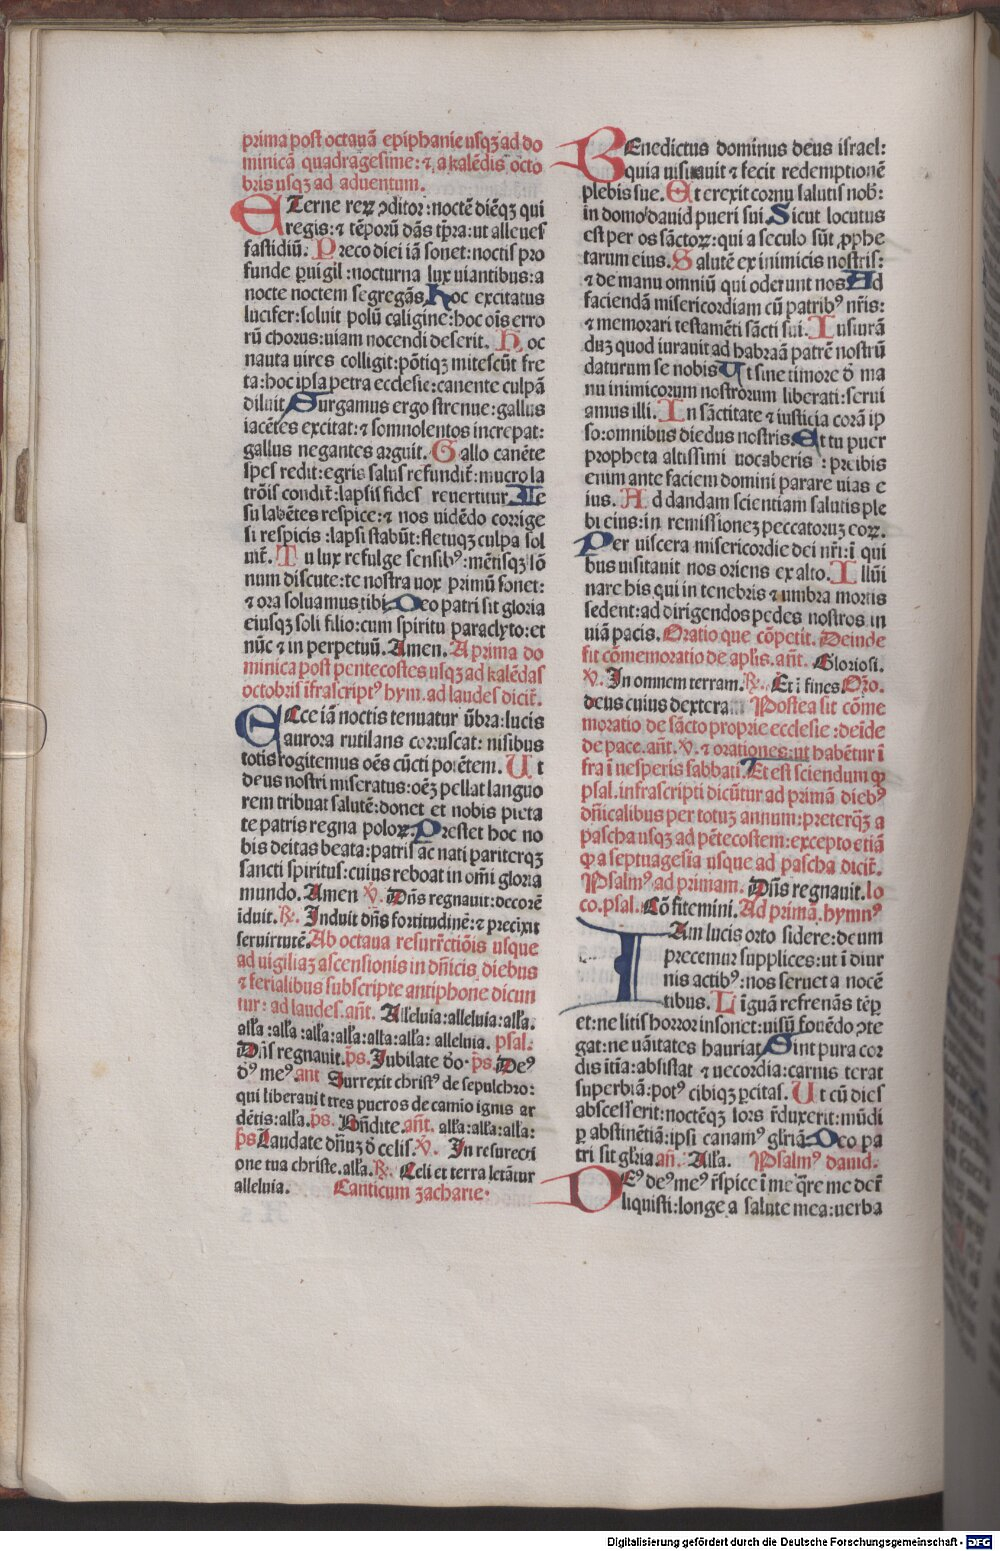 prima post octauã epiphanie usqꝫ ad do
minicã quadragesime: ⁊, a kalẽdis octo
bris usqꝫ ad aduentum.
ETerne reꝝ ↄditor: noctẽ diẽqꝫ qui
regis: ⁊ tẽporũ dãs tp̃ra: ut alleues
fastidiũ. Preco diei iã sonet: noctis pro
funde ꝑuigil: nocturna lux uiantibus: a
nocte noctem segregãs. Hoc excitatus
lucifer: soluit polũ caligine: hoc oĩs erro
rũ chorus: uiam nocendi deserit. Hoc
nauta uires colligit: põtiqꝫ mitescũt fre
ta: hoc ipsa petra ecclesie: canente culpã
diluit. Surgamus ergo strenue: gallus
iacẽtes excitat: ⁊ somnolentos increpat:
gallus negantes arguit. Gallo canẽte
spes redit: egris salus refundit̃: mucro la
trõis condit̃: lapsis fides reuertitur. Ie
su labẽtes respice: ⁊ nos uidẽdo corrige
si respicis: lapsi stabũt: fletuqꝫ culpa sol
uit̃. Tu lux refulge sensibꝰ: mẽtisqꝫ sõ
num discute: te nostra uox primũ sonet:
⁊ ora soluamus tibi. Deo patri sit gloria
eiusqꝫ soli filio: cum spiritu paraclyto: et
nũc ⁊ in perpetuũ. Amen. A prima do
minica post pentecostes usqꝫ ad kalẽdas
octobris ĩfrascriptꝰ hym. ad laudes dicit̃.
ECce iã noctis tenuatur ũbra: lucis
aurora rutilans corruscat: nisibus
totis rogitemus oẽs cũcti potẽtem. Ut
deus nostri miseratus: oẽꝫ pellat languo
rem tribuat salutẽ: donet et nobis pieta
te patris regna poloꝝ. Prestet hoc no
bis deitas beata: patris ac nati pariterqꝫ
sancti spiritus: cuius reboat in om̃i gloria
mundo. Amen ℣. Dñs regnauit: decorẽ
ĩduit. ℟. Induit dñs fortitudinẽ: ⁊ precĩxit
se uirtutẽ. Ab octaua resurr̃ctiõis usque
ad uigiliaꝫ ascensionis in dñicis, diebus
⁊ ferialibus subscripte antiphone dicun
tur: ad laudes. añt. Alleluia: alleluia: alľa.
alľa: alľa: alľa: alľa: alľa: alľa: alleluia. psal.
Dñs regnauit. p̃s. Iubilate ďo. p̃s. Deꝰ
ďs meꝰ. ant Surrexit christꝰ de sepulchro:
qui liberauit tres pueros de camio ignis ar
dẽtis: alľa. p̃s. Bñdite. añt. alľa: alľa: alľa:
p̃s Laudate dñuꝫ ď celis. ℣. In resurecti
one tua christe. alľa. ℟. Celi et terra letãtur
alleluia. Canticum zacharie.
BEnedictus dominus deus israel:
quia uisitauit ⁊ fecit redemptionẽ
plebis sue. Et erexit cornu salutis nob̃:
in domo dauid pueri sui. Sicut locutus
est per os sãctoꝝ: qui a seculo sũt ꝓphe
tarum eius. Salutẽ ex inimicis nostris:
⁊ de manu omniũ qui oderunt nos. Ad
faciendã misericordiam cũ patribꝰ nr̃is:
⁊ memorari testamẽti sãcti sui. Iusiurã
duꝫ quod iurauit ad habraã patrẽ nostrũ
daturum se nobis. Ut sine timore ď ma
nu inimicorum nostrorum liberati: serui
amus illi. In sãctitate ⁊ iusticia corã ip
so: omnibus diebus nostris. Et tu puer
propheta altissimi uocaberis: preibis
enim ante faciem domini parare uias e
ius. Ad dandam scientiam salutis ple
bi eius: in remissioneꝫ peccatoruꝫ eoꝝ.
Per uiscera misericordie dei nr̃i: ĩ qui
bus uisitauit nos oriens ex alto. Illũi
nare his qui in tenebris ⁊ umbra mortis
sedent: ad dirigendos pedes nostros in
uiã pacis. Oratio que cõpetit. Deinde
fit cõmemoratio de apľis. añt. Gloriosi.
℣. In omnem terram. ℟. Et ĩ fines Oro.
deus cuius dexteram Postea fit cõme
moratio de sãcto proprie ecclesie: deĩde
de pace. añt. ℣. ⁊ orationes: ut habẽtur ĩ
fra ĩ uesperis sabbati. Et est sciendum ꝙ
psal. infrascripti dicũtur ad primã diebꝰ
dñicalibus per totuꝫ annum: preterq̃ꝫ a
pascha usqꝫ ad pẽtecostem: excepto etiã
ꝙ a septuagesĩa usque ad pascha dicit̃.
Psalmꝰ ad primam. Dñs regnauit. lo
co. psal. Cõfitemini. Ad primã. hymnꝰ
IAm lucis orto sidere: deum
precemur supplices: ut ĩ diur
nis actibꝰ: nos seruet a nocẽ
tibus. Lĩguã refrenãs tẽꝑ
et: ne litis horror insonet: uisũ fouẽdo ↄte
gat: ne uãitates hauriat. Sint pura cor
dis ĩtĩa: absistat ⁊ uecordia: carnis terat
superbiã: potꝰ cibiqꝫ ꝑcitas. Ut cũ dies
abscesserit: noctẽqꝫ sors r̃duxerit: mũdi
ꝑ abstinẽtiã: ipsi canamꝰ gľriã. Deo pa
tri sit gľria. añ. Alľa. Psalmꝰ dauid.
DEꝰ deꝰ meꝰ r̃spice ĩ me q̃re me der̃
liquisti: longe a salute mea: uerba
Digitalisierung gefördert durch die Deutsche Forschungsgemeinschaft - DFG